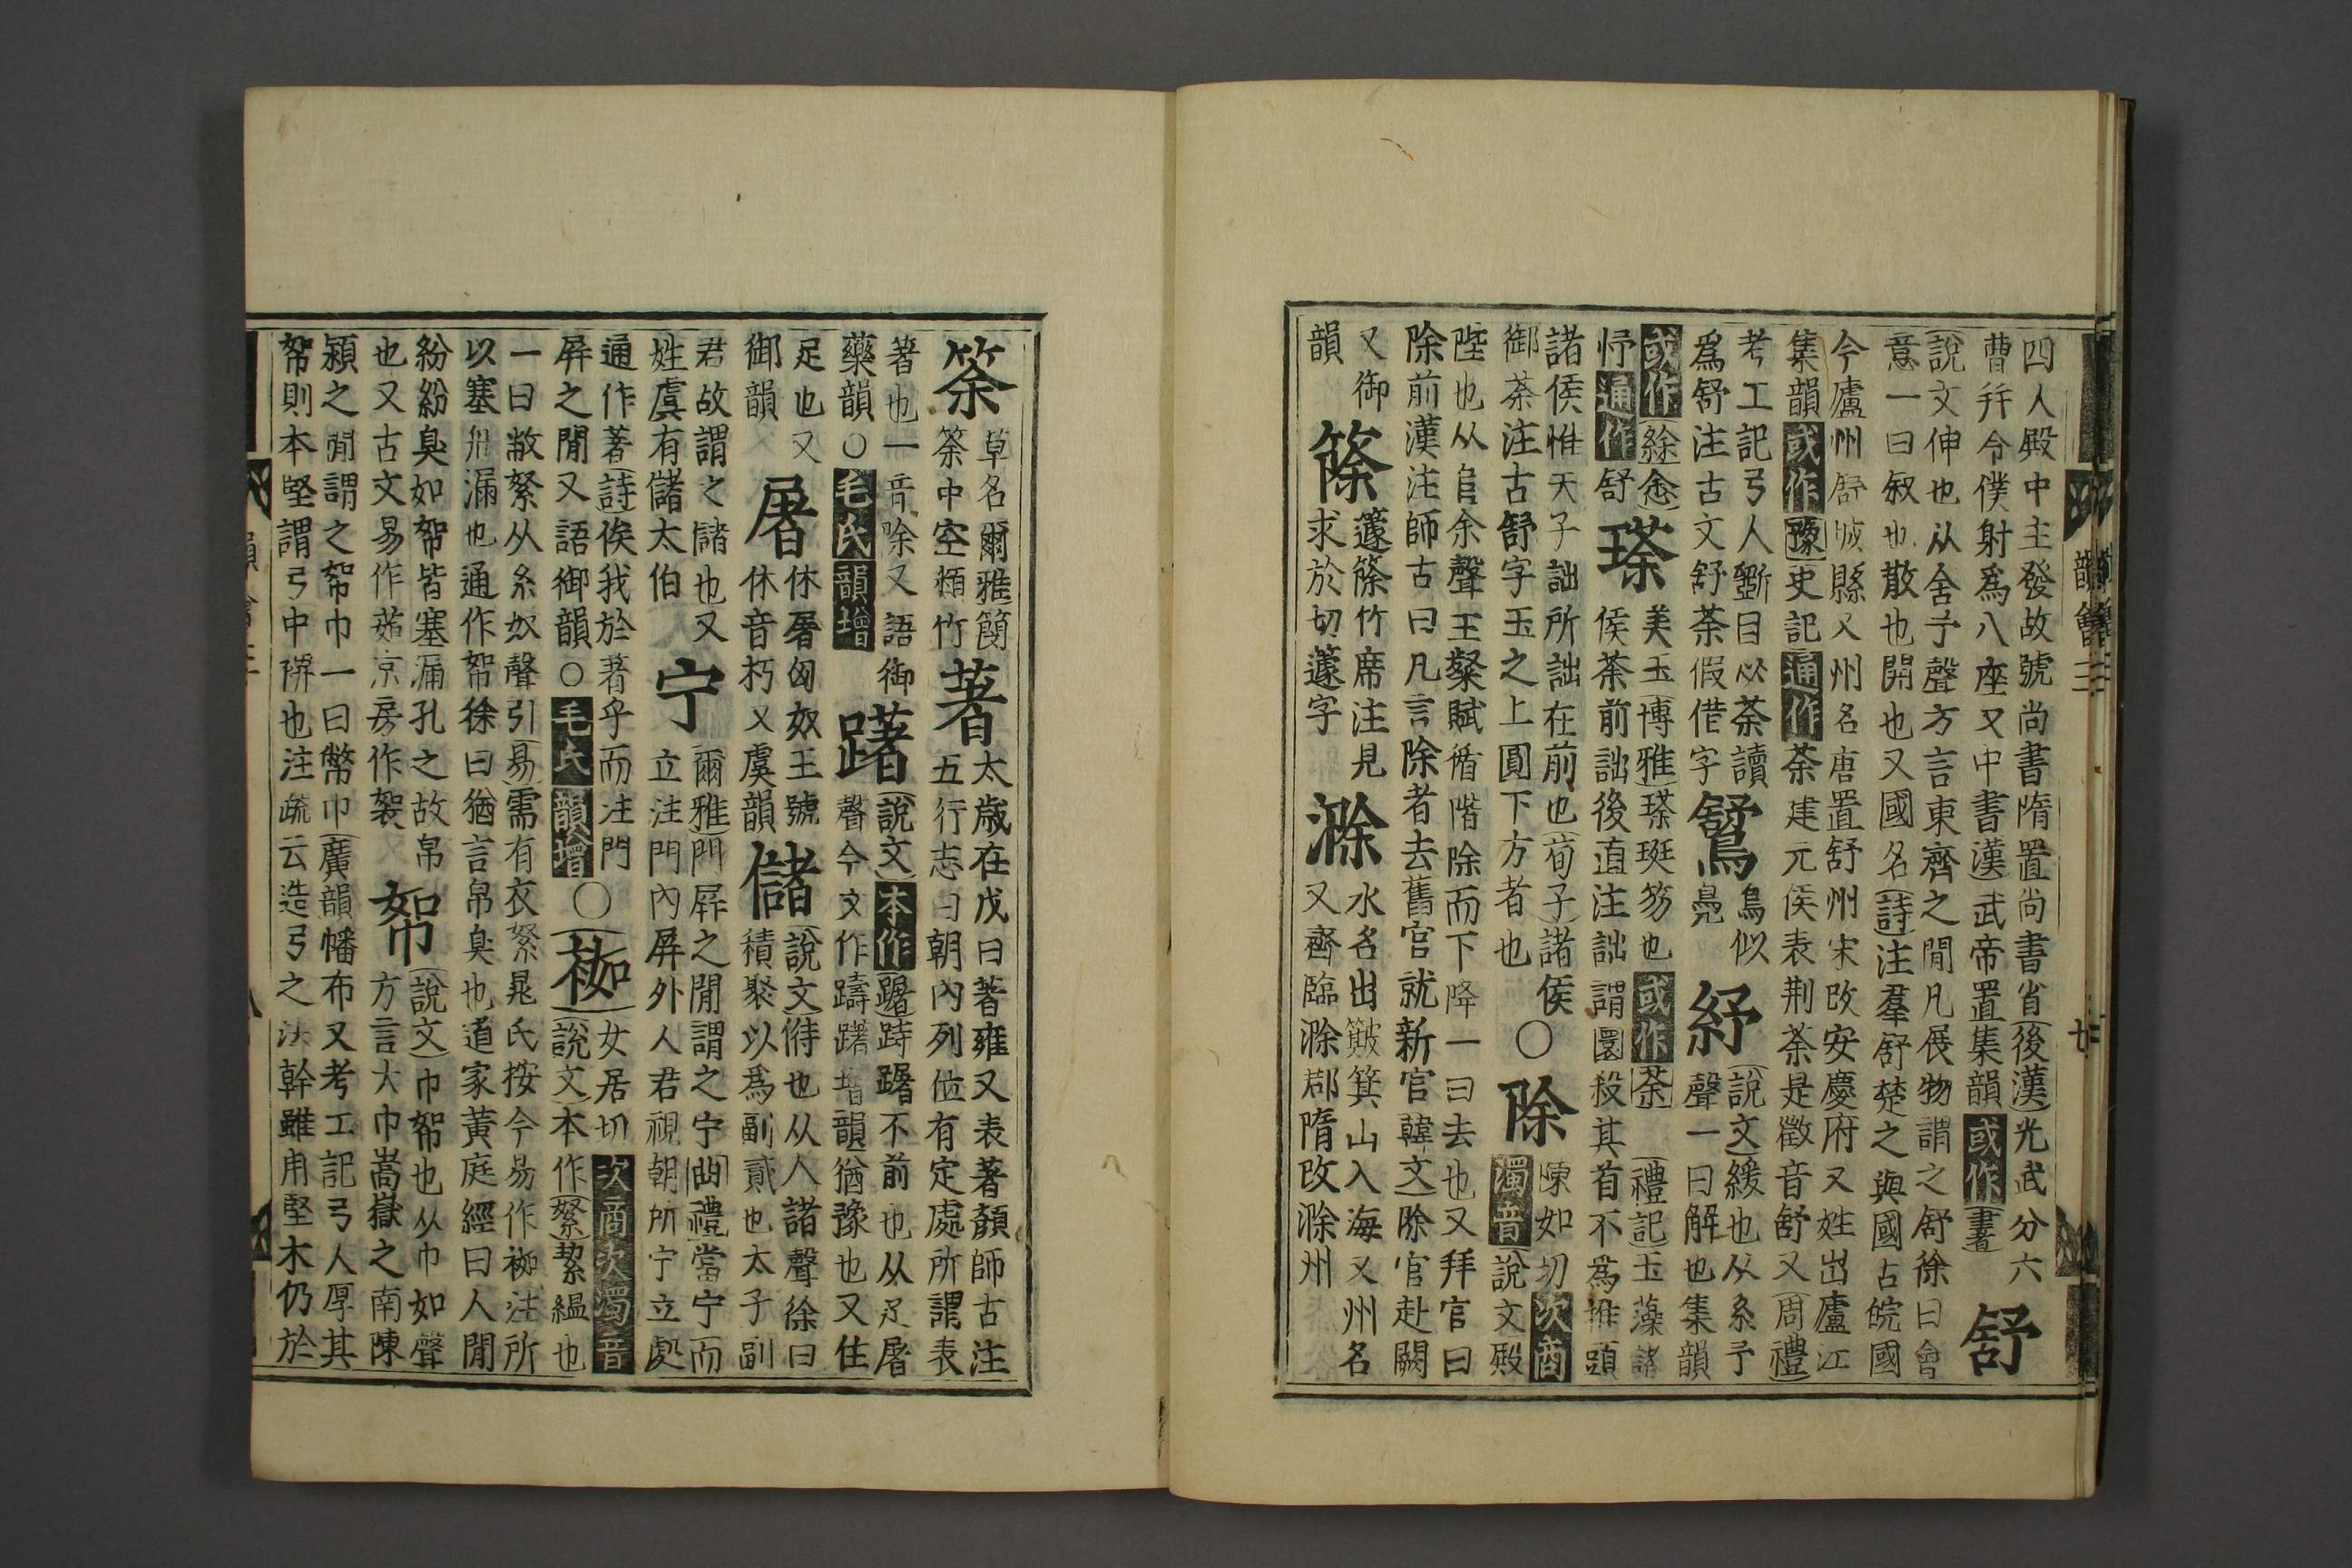 四人殿中主發故號尚書隋置尚書省後漢光武分六
曹幷令僕射爲八座又中書漢武帝置集韻或作書
舒
說文伸也从舍予聲方言東齊之閒凡展物謂之舒徐曰會
意一曰叙也散也開也又國名詩注羣舒楚之與國占皖國
今廬州舒城縣又州名唐置舒州宋改安慶府又姓出廬江
集韻或作豫史記通作荼建元侯表荆荼是徵音舒又周禮
考工記弓人斲目必荼讀
爲舒注古文舒荼假借字
鵨
鳥似
鳧
紓
說文緩也从糸予
聲一曰解也集韻
或作悆
忬通作舒
瑹
美玉博雅瑹珽笏也或作荼禮記玉藻諸
侯荼前詘後直注詘謂圜殺其首不爲椎頭
諸侯惟天子詘所詘在前也荀子諸侯
御荼注古舒字玉之上圓下方者也
○
除
陳如切次商
濁音說文殿
陛也从𨸏余聲王粲賦循階除而下降一曰去也又拜官曰
除前漢注師古曰凡言除者去舊官就新官韓文除官赴闕
又御
韻
篨
籧篨竹席注見
求於切籧字
滁
水名出㿭箕山入海又州名
又齊臨滁郡隋改滁州
筡
草名爾雅簢
筡中空類竹
著
太歲在戊曰著雍又表著顏師古注
五行志曰朝內列位有定處所謂表
著也一音除又語御
藥韻○毛氏韻增
躇
說文本作踞跱踞不前也从足屠
聲今文作躊躇增韻猶豫也又住
足也又
御韻
屠
休屠匈奴王號
休音朽又虞韻
儲
說文偫也从人諸聲徐曰
積聚以爲副貳也太子副
君故謂之儲也又
姓虞有儲太伯
宁
爾雅門屏之閒謂之宁曲禮當宁而
立注門內屏外人君視朝所宁立處
通作著詩俟我於著乎而注門
屏之閒又語御韻○毛氏韻增
○
袽
女居切次商次濁音
說文本作絮縕也
一曰敝絮从糸奴聲引易需有衣絮晁氏按今易作袽注所
以塞舟漏也通作帤徐曰猶言帛臭也道家黃庭經曰人閒
紛紛臭如帤皆塞漏孔之故帛
也又古文易作茹京房作袈
帤
說文巾帤也从巾如聲
方言大巾嵩嶽之南陳
潁之閒謂之帤巾一曰幣巾廣韻幡布又考工記弓人厚其
帤則本堅謂弓中裨也注疏云造弓之法幹雖用堅木仍於